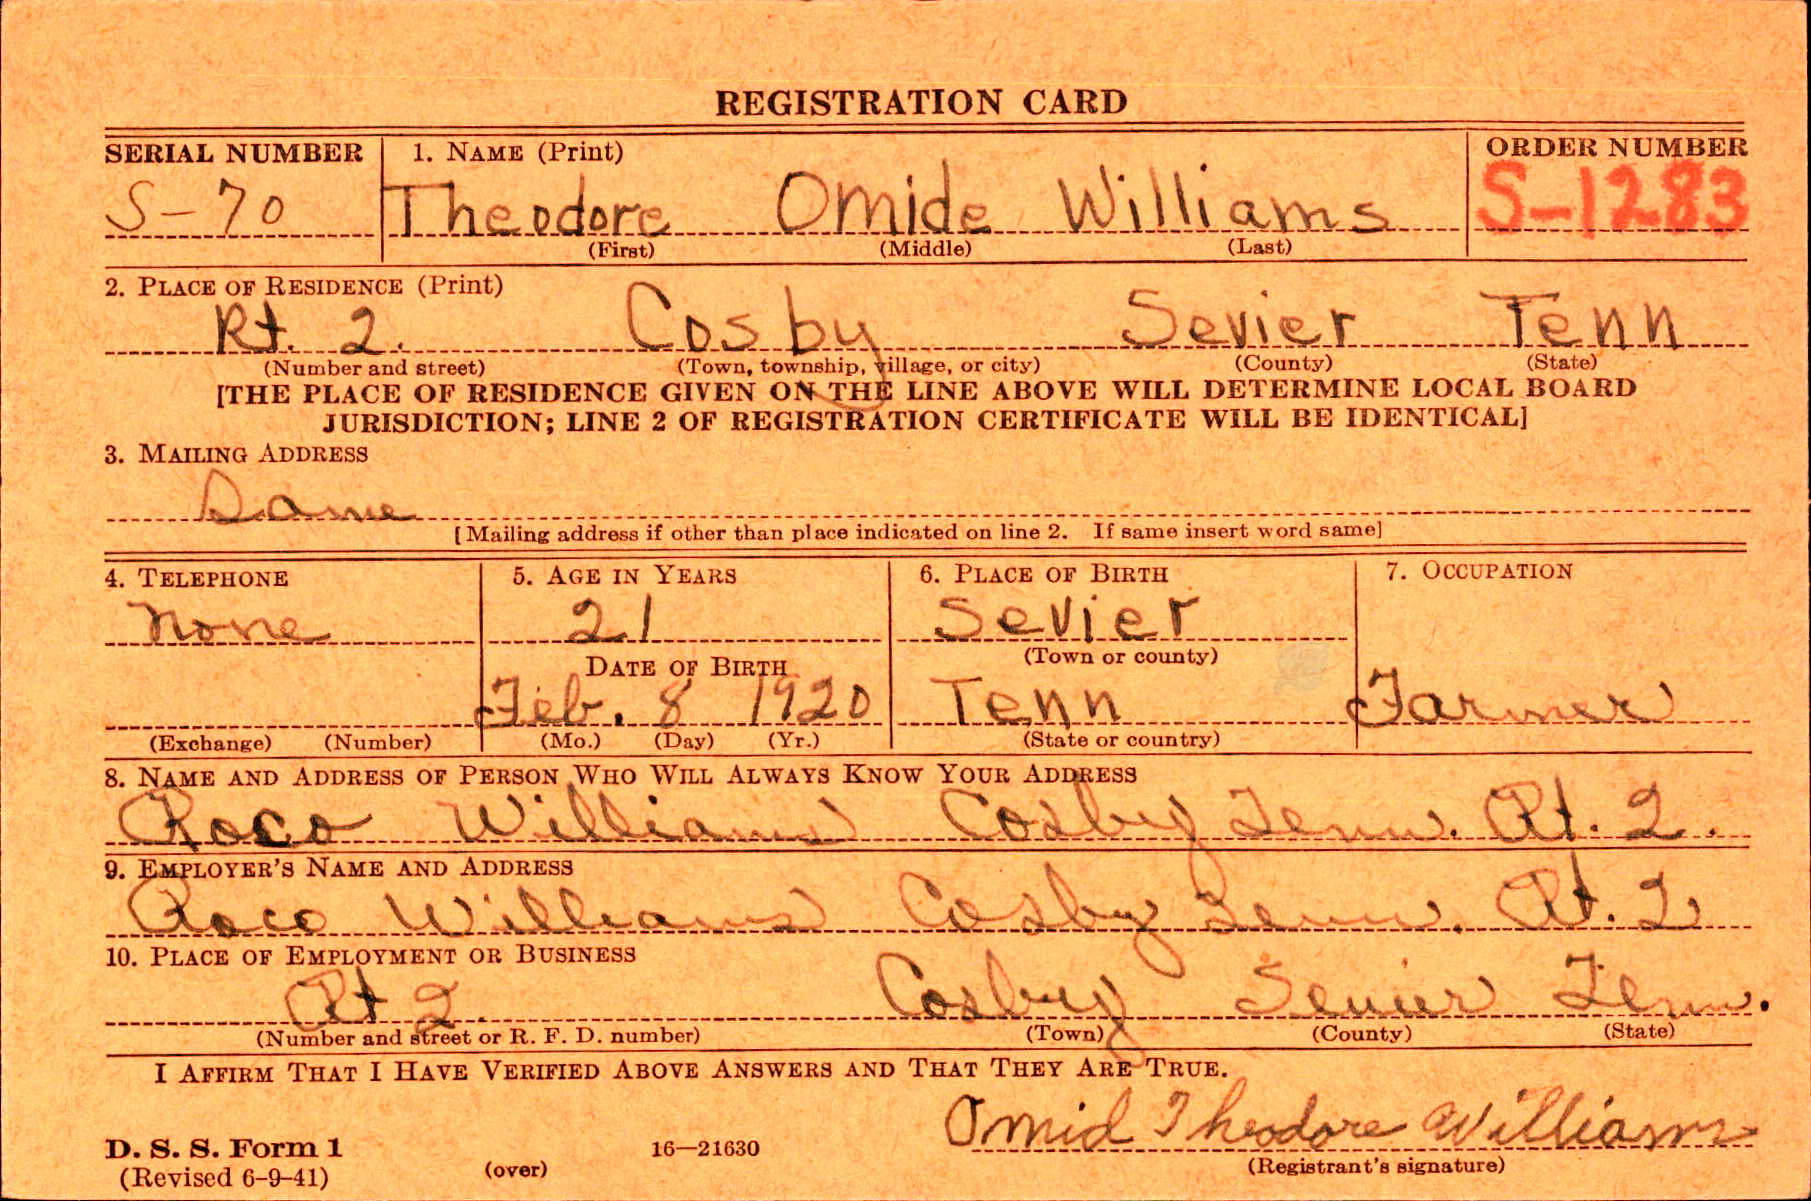 REGISTRATION CARD
SERIAL NUMBER 1. NAME (Print) ORDER NUMBER
S-70 Theodore Omide Williams S-1283
(First) (Middle) (Last)
2. PLACE OF RESIDENCE (Print)
Rt. 2. Cosby Sevier Tenn
(Number and street) (Town, township, village, or city) (County) (State)
[THE PLACE OF RESIDENCE GIVEN ON THE LINE ABOVE WILL DETERMINE LOCAL BOARD
JURISDICTION; LINE 2 OF REGISTRATION CERTIFICATE WILL BE IDENTICAL]
3. MAILING ADDRESS
Same
[Mailing address if other than place indicated on line 2. If same insert word same]
4. TELEPHONE 5. AGE IN YEARS 6. PLACE OF BIRTH 7. OCCUPATION
None 21 Sevier
DATE OF BIRTH (Town or county)
Feb. 8 1920 Tenn Farmer
(Exchange) (Number) (Mo.) (Day) (Yr.) (State or country)
8. NAME AND ADDRESS OF PERSON WHO WILL ALWAYS KNOW YOUR ADDRESS
Roco Williams Cosby Tenn. Rt. 2.
9. EMPLOYER'S NAME AND ADDRESS
Roco Williams Cosby Tenn. Rt. 2
10. PLACE OF EMPLOYMENT OR BUSINESS
Rt 2. Cosby Sevier Tenn.
(Number and street or R. F. D. number) (Town) (County) (State)
I AFFIRM THAT I HAVE VERIFIED ABOVE ANSWERS AND THAT THEY ARE TRUE.
Omid Theodore Williams
D. S. S. Form 1 16—21630
(Revised 6-9-41) (over) (Registrant's signature)